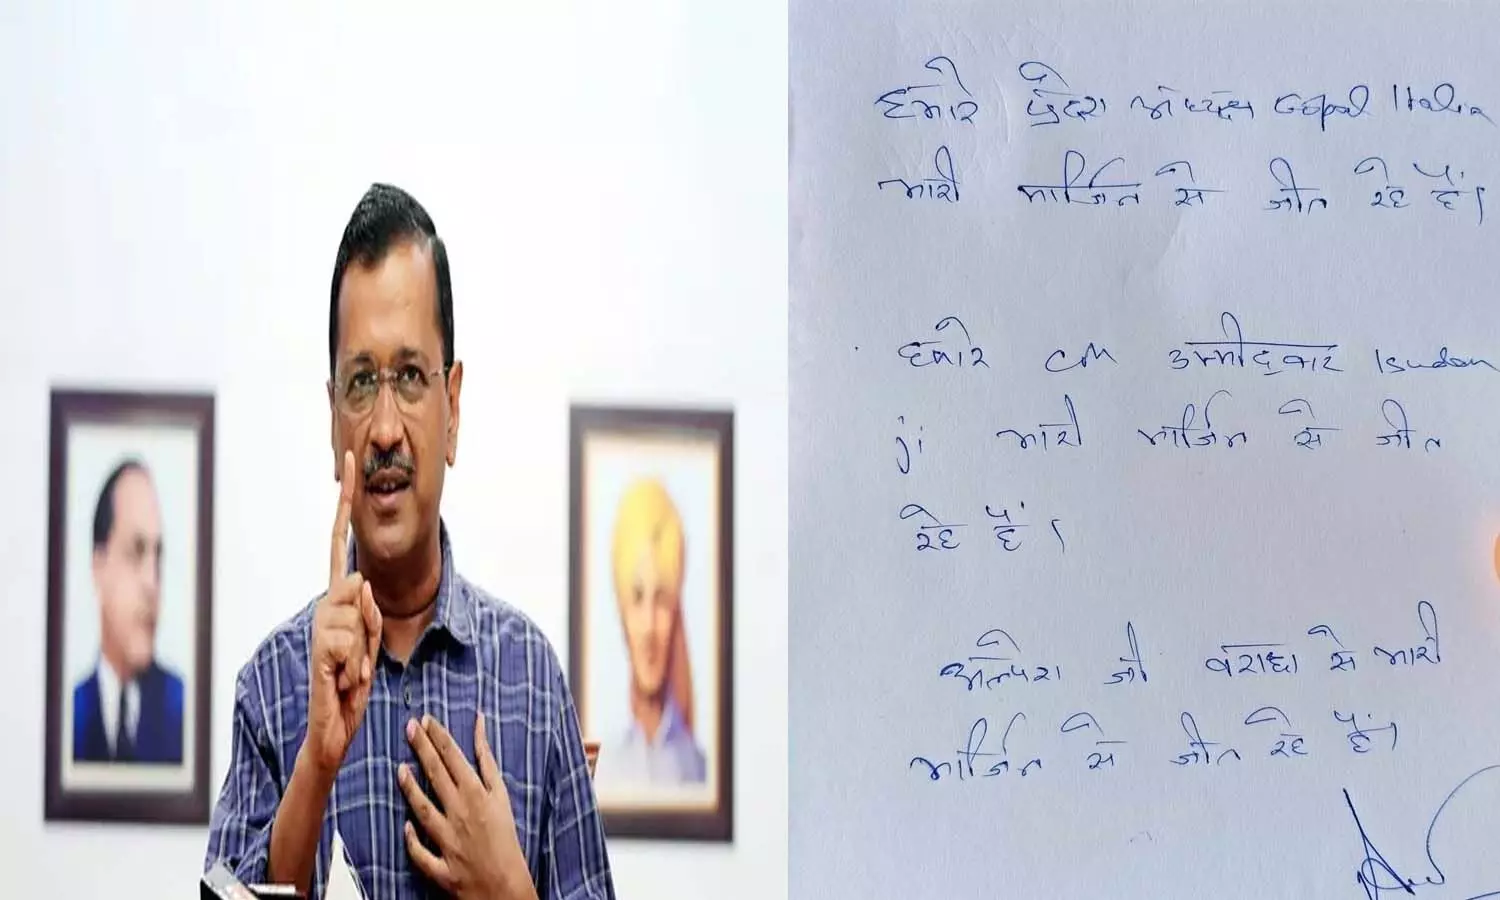 हमारे प्रदेश अध्यक्ष Gopal Italia
भारी मार्जिन से जीत रहे हैं।
हमारे CM उम्मीदवार Isudan
ji भारी मार्जिन से जीत
रहे हैं।
अल्पेश जी वराछा से भारी
मार्जिन से जीत रहे हैं।